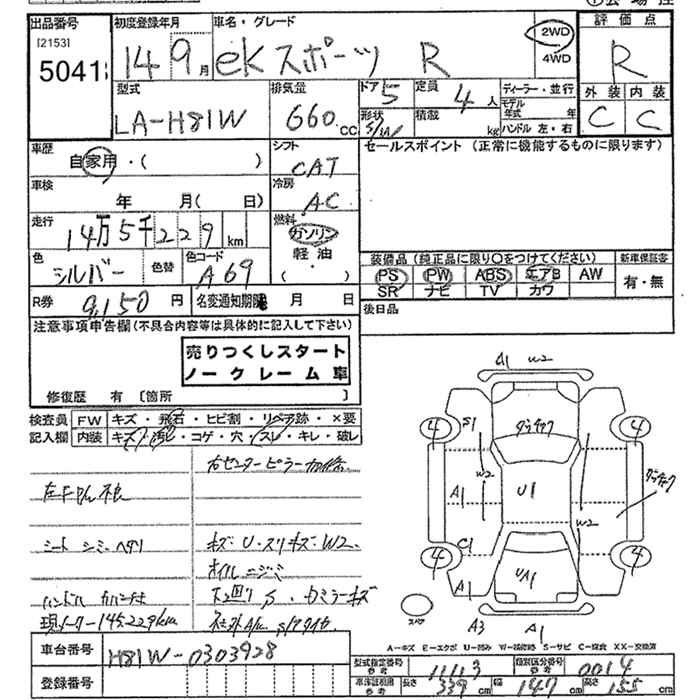 出品番号 初度登録年月 車名・グレード 評価点
[2153] 5041 14 9月 eKスポーツ R 2WD 4WD R
型式 排気量 ドア 5 定員 4人 ディーラー・並行 外装 内装
LA-H81W 660cc 形状 S/W 積載 kg モデル年式 年 ハンドル 左・右 C C
車歴 自家用・( ) シフト CAT セールスポイント (正常に機能するものに限ります)
車検 年 月( 日) 冷房 AC
走行 14万5千229km 燃料 ガソリン 軽油・( )
色 シルバー 色替 色コード A69 装備品 (純正品に限り○をつけてください) 新車保証書
PS PW ABS エアB AW 有・無
SR ナビ TV カワ
R券 9,150円 名変通知期限 月 日 後日品
注意事項申告欄 (不具合内容等は具体的に記入して下さい)
売りつくしスタート
ノークレーム車
修復歴 有 [箇所 ]
検査員 FW キズ・飛石・ヒビ割・リペア跡・×要
記入欄 内装 キズ・汚レ・コゲ・穴・スレ・キレ・破レ
右センターピラー
シート シミ ヘタリ キズ・U・スリキズ・W2
オイルニジミ
下回り S
現メーター145,229km
A1 W2
S1 4 4
W2 A1 U1 W2
C1 4 4
A1 UA1
A3 A1
A=キズ E=エクボ U=凹み W=補修跡 S=サビ C=腐食 XX=交換済
車台番号 H81W-0303928
登録番号
型式指定番号 参考 11113 類別区分番号 参考 0014
車体証明書 参考 長さ 339cm 幅 147cm 高さ 155cm